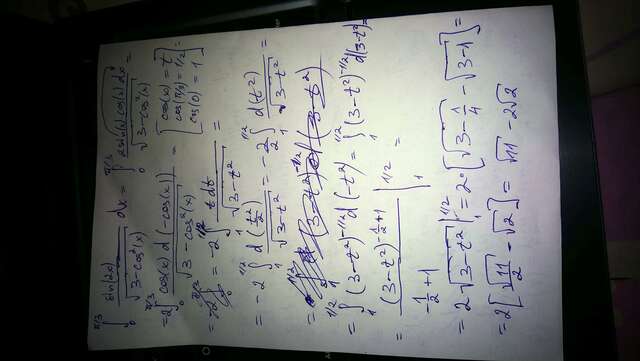 ∫₀^{π/3} sin(2x)/√(3-cos²(x)) dx = ∫₀^{π/3} 2sin(x)cos(x)dx/√(3-cos²(x)) =
= 2∫₀^{π/3} cos(x)d(-cos(x))/√(3-cos²(x)) = [cos(x)=t cos(π/3)=1/2 cos(0)=1] =
= -2∫₁^{1/2} t dt/√(3-t²) =
= -2∫₁^{1/2} d(t²/2)/√(3-t²) = -2/2 ∫₁^{1/2} d(t²)/√(3-t²) =
= ∫₁^{1/2} (3-t²)^{-1/2} d(-t²) = ∫₁^{1/2} (3-t²)^{-1/2} d(3-t²) =
= (3-t²)^{-1/2+1}/(-1/2+1) |₁^{1/2} =
= 2√(3-t²) |₁^{1/2} = 2·[√(3-1/4) - √(3-1)] =
= 2[√11/2 - √2] = √11 - 2√2